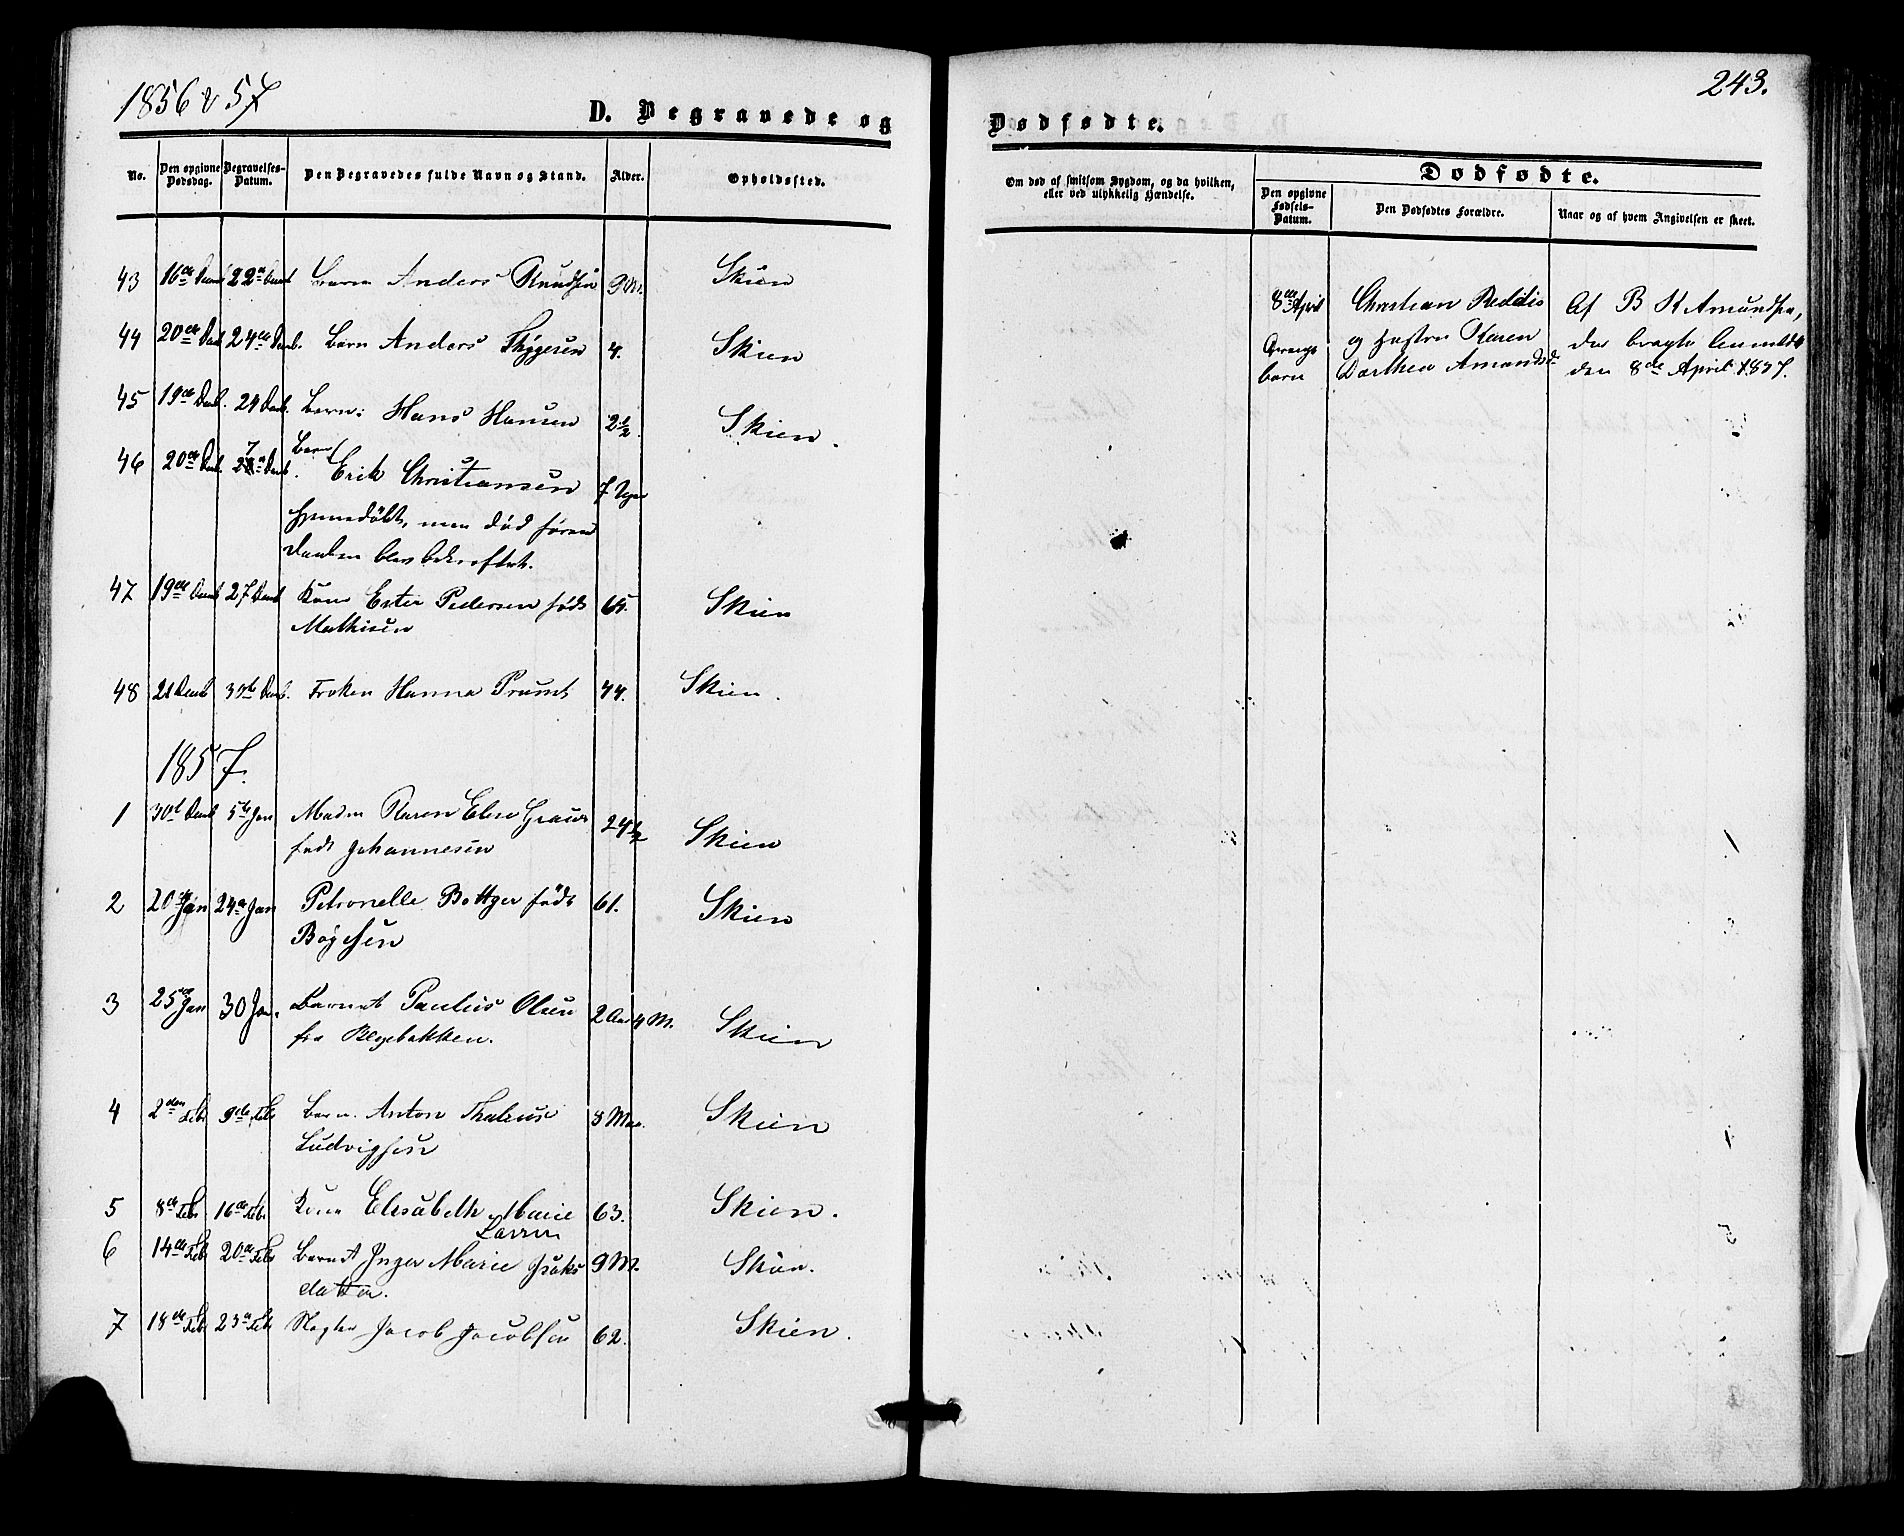 1856 & 57
243.
D. Begravede og Dødfødte.
No.
Den opgivne Dødsdag.
Begravelses-Datum.
Den Begravedes fulde Navn og Stand.
Alder.
Opholdssted.
Om død af smitsom Sygdom, og da hvilken,
eller ved ulykkelig Hændelse.
Dødfødte.
Den opgivne Fødsels-Datum.
Den Dødfødtes Forældre.
Naar og af hvem Angivelsen er skeet.
43 16de Decmb 22de Decmb Barn Anders Knudsen 9 M. Skien
44 20de Decb 24de Decmb. Barn Anders Thygesen 4. Skien
45 19de Decb. 24 Decb. Barn: Hans Hansen 2½ Skien.
46 20de Decb. 27 Decb. Barn
Erik Christiansen 7 Uger
hjemmedøbt, men død førend
Daaben blev bekræftet.
47 19de Decmb 27 Decmb Kone Ester Pedersen født 65. Skien
Mathisen
48 21 Decmb 30te Decmb. Frøken Hanna Prumt 44. Skien.
1857.
1 30te Decmb 5te Jan Madm Karen Elise født Johannesen 24½ Skien
2 20de Jan 24de Jan Petronelle Bøttger født 61. Skien
Bøyesen
3 25de Jan 30 Jan. Barnet Paulus Olsen 2 Aar 4 M. Skien
fra Blegebakken.
4 2den Feb 9de Feb Barn. Anton 8 Maa. Skien
Ludvigsen
5 8de Feb 16de Feb Kone Elisabeth Marie 63. Skien.
Larsen
6 14de Feb 20de Feb Barnet Inger Marie Isaks 9 M. Skien.
datter.
7 18de Feb 23de Feb Jacob Jacobsen 62. Skien.
8de April Christian Reddis Af B K Amundsen,
og Hustru Karen der bragte anmeldt
barn Dorthea Amundsd. den 8de April 1857.